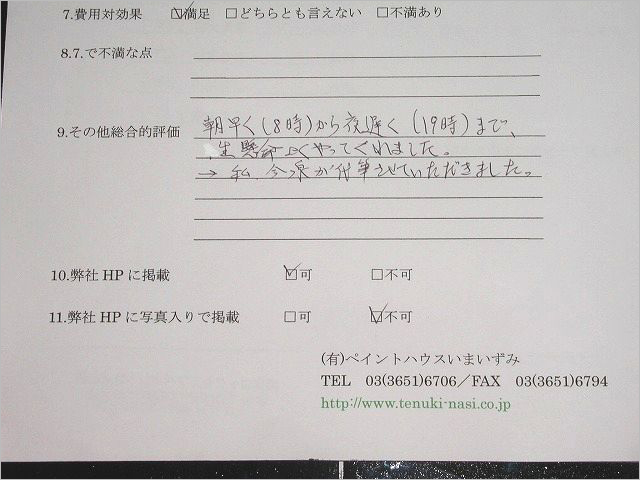 7.費用対効果 ☑満足 □どちらとも言えない □不満あり
8.7.で不満な点
9.その他総合的評価 朝早く(8時)から夜遅く(19時)まで、
生懸命よくやってくれました。
→ 私 今泉が代筆させていただきました。
10.弊社 HP に掲載 ☑可 □不可
11.弊社 HP に写真入りで掲載 □可 ☑不可
(有)ペイントハウスいまいずみ
TEL 03(3651)6706／FAX 03(3651)6794
http://www.tenuki-nasi.co.jp